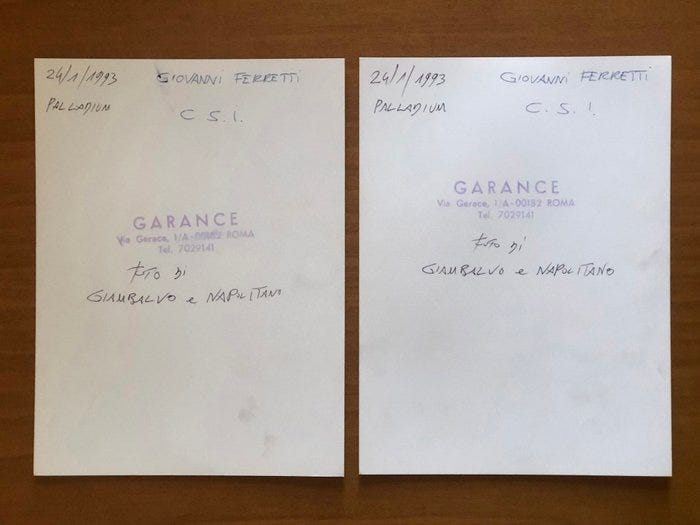 24/1/1993 GIOVANNI FERRETTI
PALLADIUM C S.I.
GARANCE
Via Gerace, 1/A-00182 ROMA
Tel. 7029141
FOTO DI
GIAMBALVO e NAPOLITANO
24/1/1993 GIOVANNI FERRETTI
PALLADIUM C. S. I.
GARANCE
Via Gerace, 1/A-00182 ROMA
Tel. 7029141
FOTO DI
GIAMBALVO e NAPOLITANO